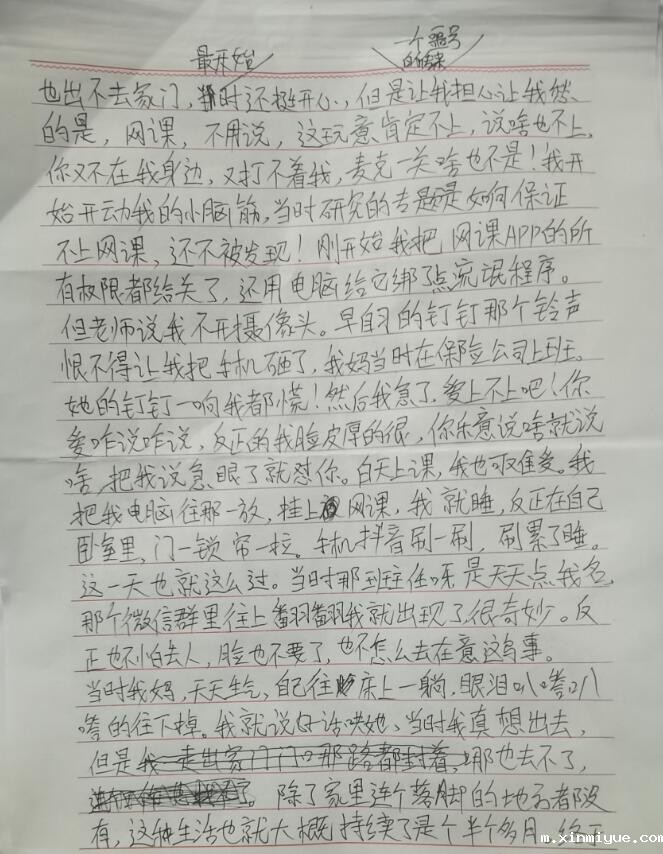 最开始
一个番号
的结束
也出不去家门,当时还挺开心,但是让我担心让我愁
的是,网课,不用说,这玩意肯定不上,说啥也不上,
你又不在我身边,又打不着我,麦克一关啥也不是!我开
始开动我的小脑筋,当时研究的专题是如何保证
不上网课,还不被发现!刚开始我把网课APP的所
有权限都给关了,还用电脑给它绑了点流氓程序。
但老师说我不开摄像头。早自习的钉钉那个铃声
恨不得让我把手机砸了,我妈当时在保险公司上班。
她的钉钉一响我都慌!然后我急了,爱上不上吧!你
爱咋说咋说,反正的我脸皮厚的很,你乐意说啥就说
啥,把我说急眼了就怼你。白天上课,我也可准爱。我
把我电脑往那一放,挂上网课,我就睡,反正在自己
卧室里,门一锁帘一拉。手机抖音刷一刷,刷累了睡。
这一天也就这么过。当时那班主任呀是天天点我名,
那个微信群里往上翻翻我就出现了,很奇妙。反
正也不怕丢人,脸也不要了,也不怎么去在意这鸟事。
当时我妈,天天生气,自己往床上一躺,眼泪叭嗒叭
嗒的往下掉。我就说好话哄她、当时我真想出去,
但是我一走出家门门口那路都封着,哪也去不了,
除了家里连个落脚的地方都没
有,这种生活也就大概持续了是个半个多月,终于
m.xinmiyue.com